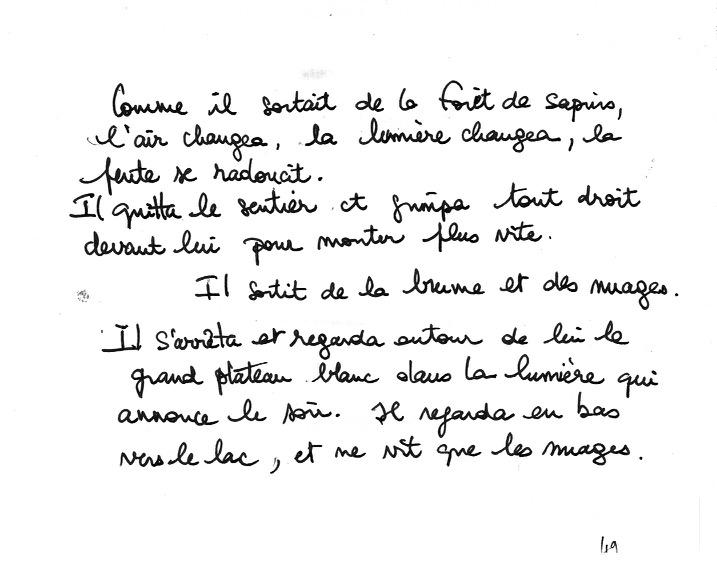 Comme il sortait de la forêt de sapins,
l'air changea, la lumière changea, la
pente se radoucit.
Il quitta le sentier et grimpa tout droit
devant lui pour monter plus vite.
Il sortit de la brume et des nuages.
Il s'arrêta et regarda autour de lui le
grand plateau blanc dans la lumière qui
annonce le soir. Il regarda en bas
vers le lac, et ne vit que les nuages.